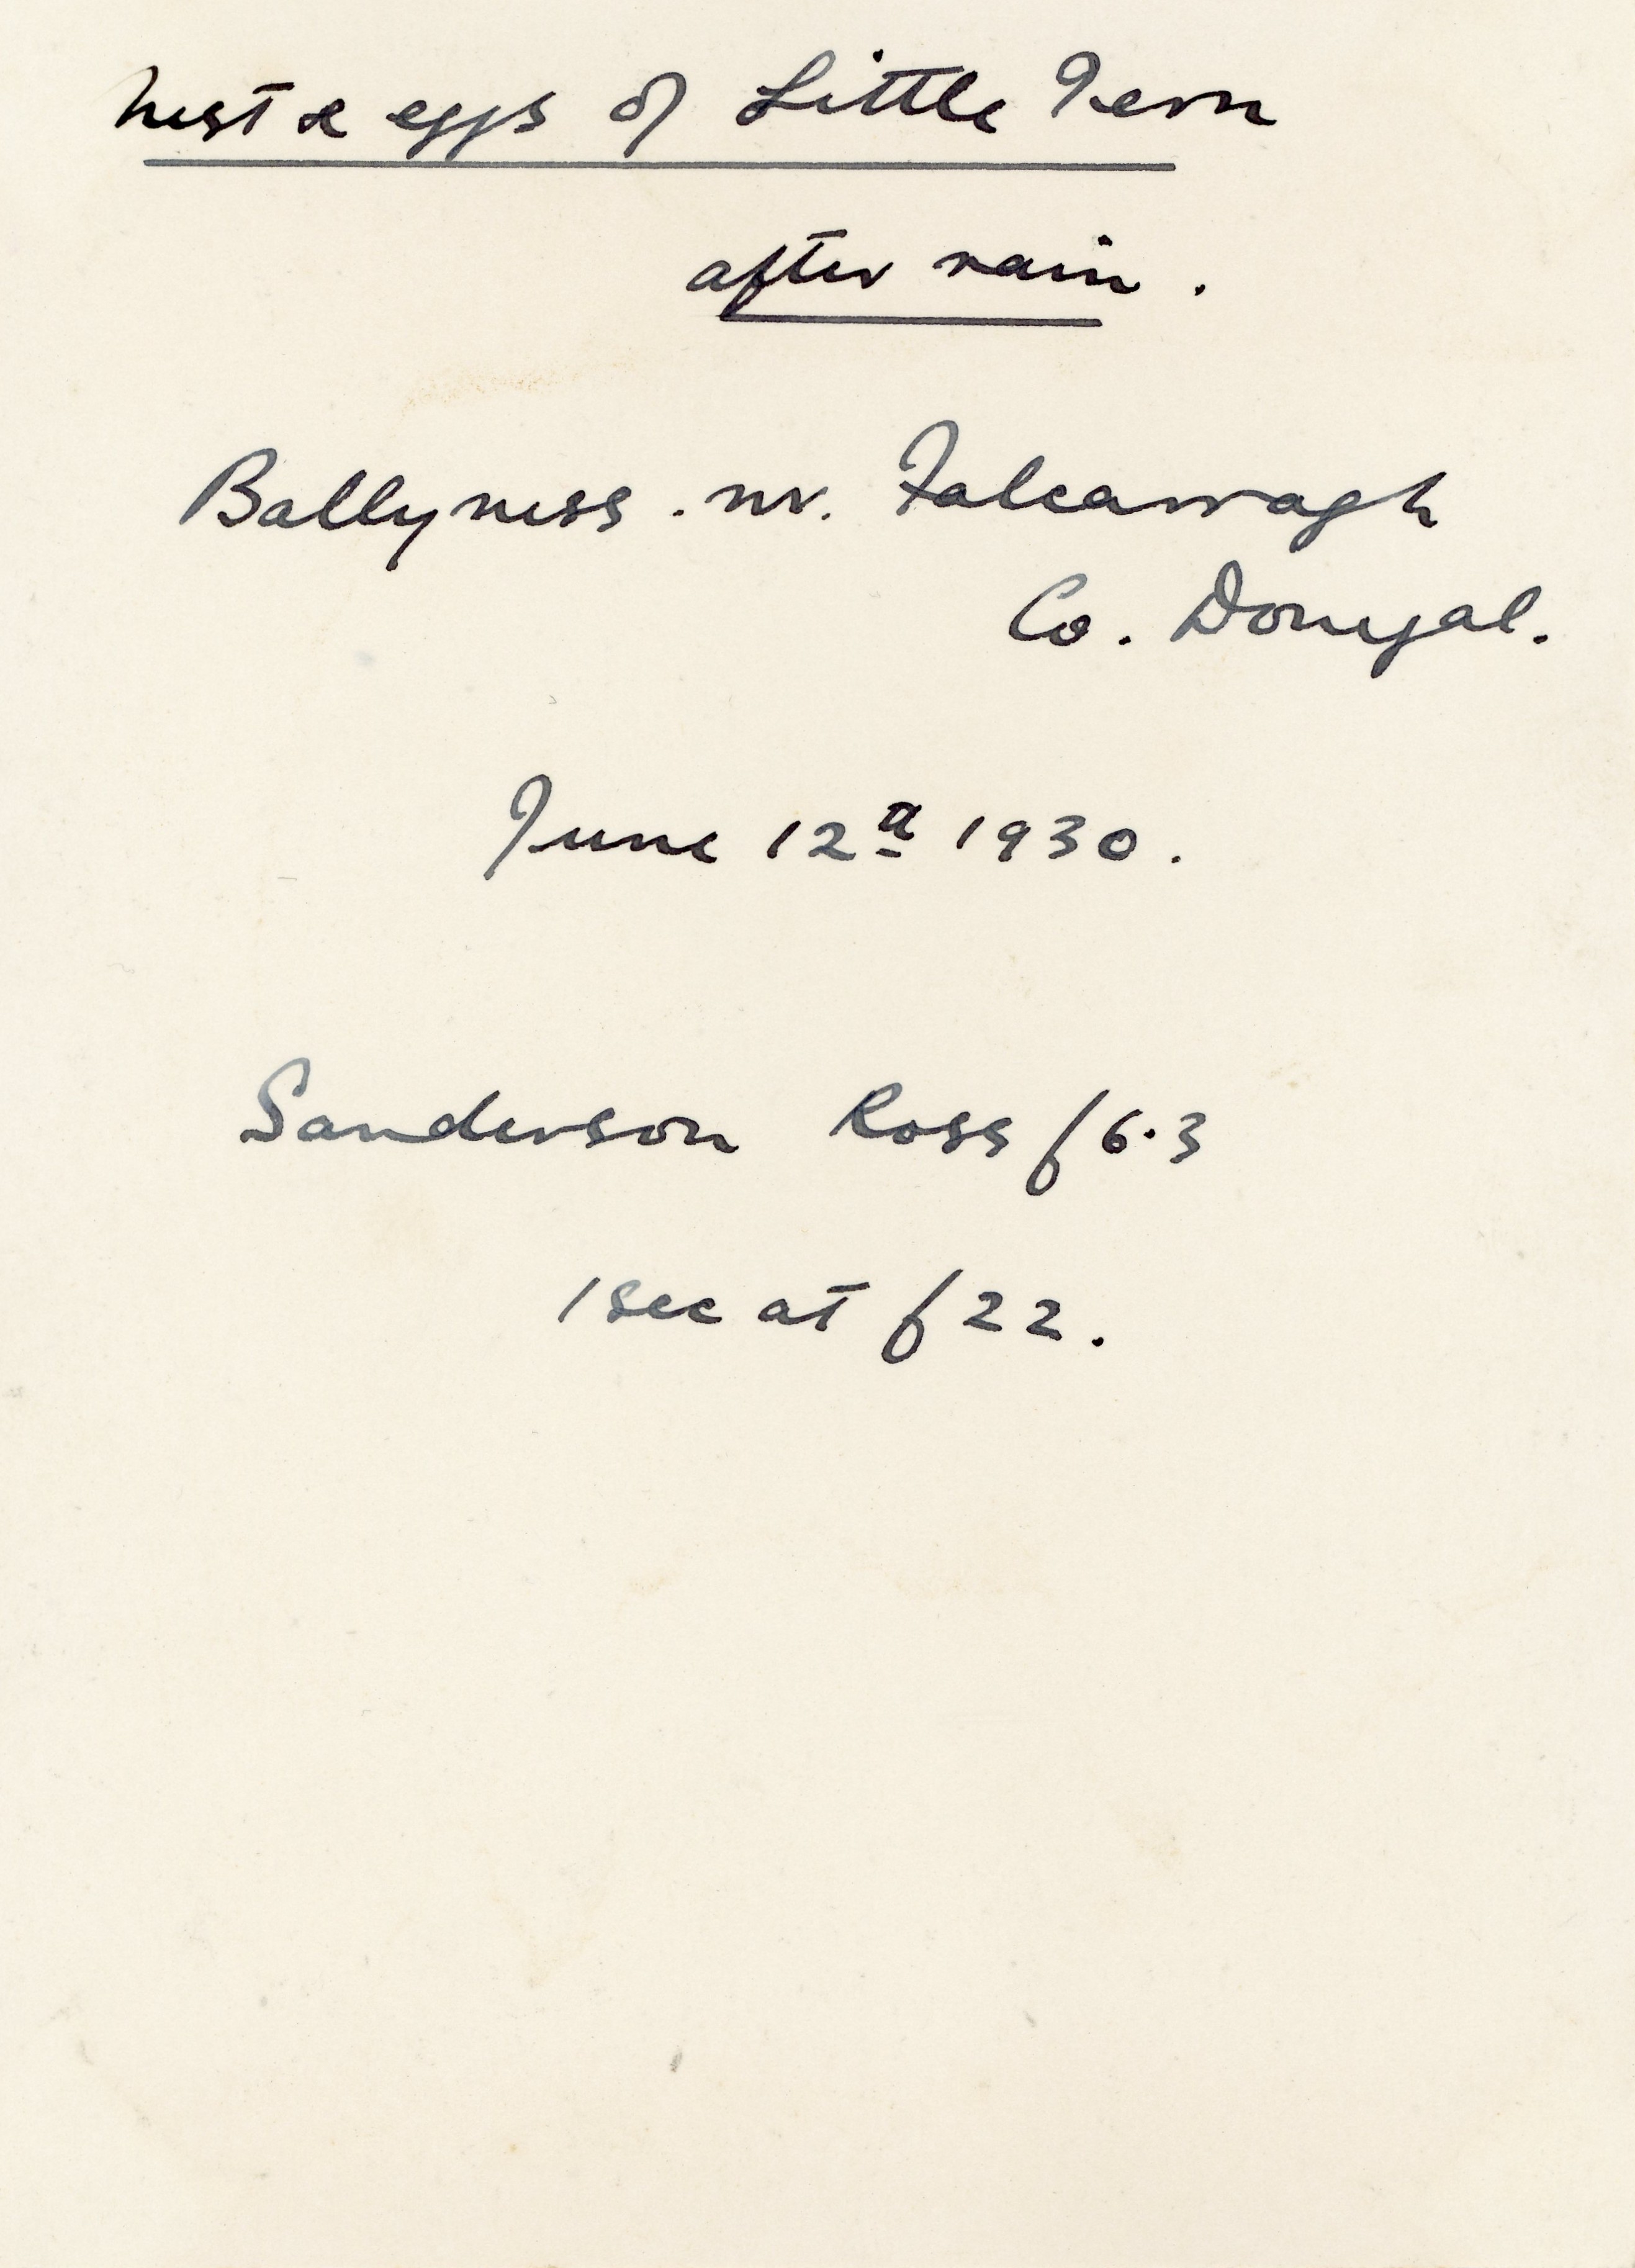 Nest & eggs of Little Tern
after rain.
Ballyness. nr. Falcarragh
Co. Donegal.
June 12th 1930.
Sanderson Ross f6.3
1 sec at f22.